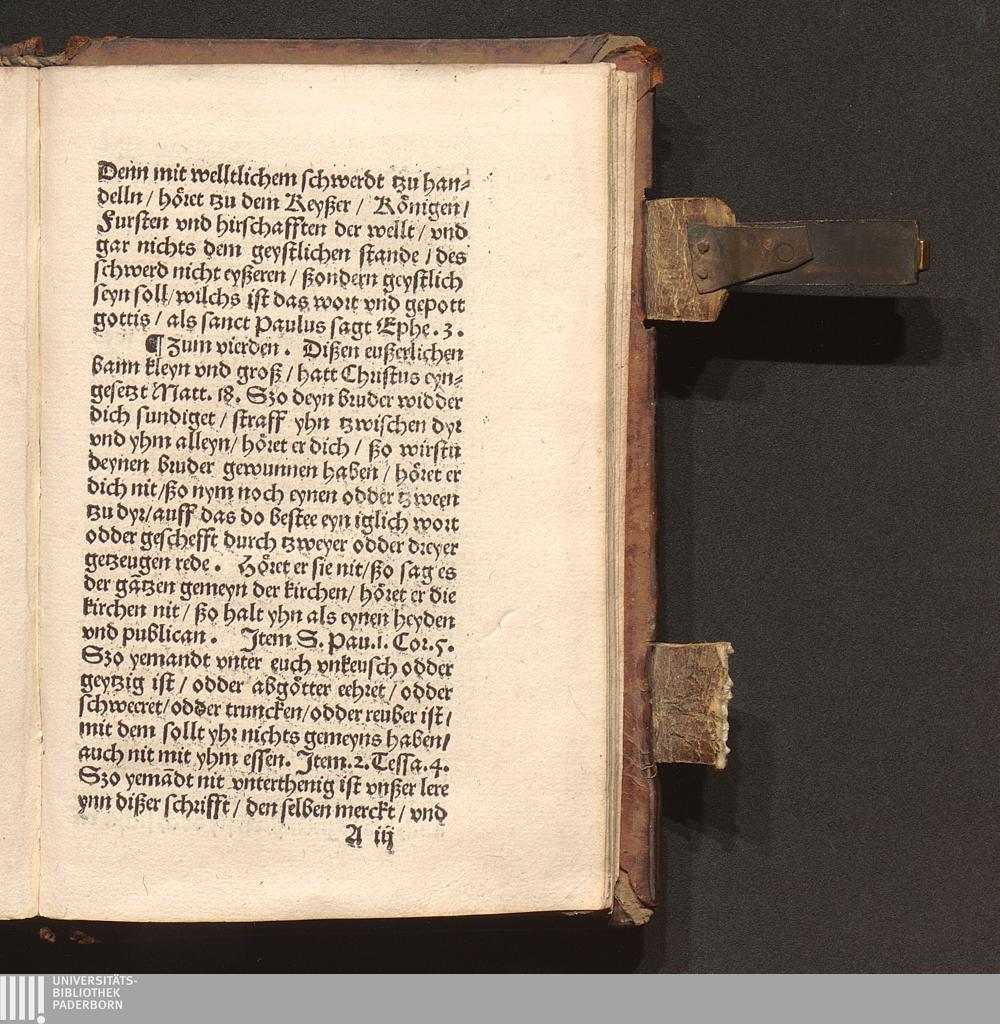 Denn mit welltlichem schwerdt tzu han⸗
delln / höret tzu dem Keyßer / Königen /
Fursten vnd hirschafften der wellt / vnd
gar nichts dem geystlichen stande / des
schwerd nicht eyßeren / ßondern geystlich
seyn soll / wilchs ist das wort vnd gepott
gottis / als sanct Paulus sagt Ephe . 3 .
¶ Zum vierden . Dißen eußerlichen
bann kleyn vnd groß / hatt Christus eyn⸗
gesetzt Matt . 18 . Szo deyn bruder widder
dich sundiget / straff yhn tzwischen dyr
vnd yhm alleyn / höret er dich / ßo wirstu
deynen bruder gewunnen haben / höret er
dich nit / ßo nym noch eynen odder tzween
tzu dyr / auff das do bestee eyn iglich wort
odder geschefft durch tzweyer odder dreyer
getzeugen rede . Höret er sie nit / ßo sag es
der gãtzen gemeyn der kirchen / höret er die
kirchen nit / ßo halt yhn als eynen heyden
vnd publican . Item S . Pau . 1 . Cor . 5 .
Szo yemandt vnter euch vnkeusch odder
geytzig ist / odder abgötter eehret / odder
schwecret / odder truncken / odder reuber ist /
mit dem sollt yhr nichts gemeyns haben /
auch nit mit yhm essen . Item . 2 . Tessa . 4 .
Szo yemãdt nit vnterthenig ist vnßer lere
ynn dißer schrifft / den selben merckt / vnd
A iij
UNIVERSITÄTS-
BIBLIOTHEK
PADERBORN